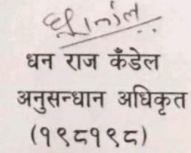 धन राज कँडेल
अनुसन्धान अधिकृत
(१९८१९८)